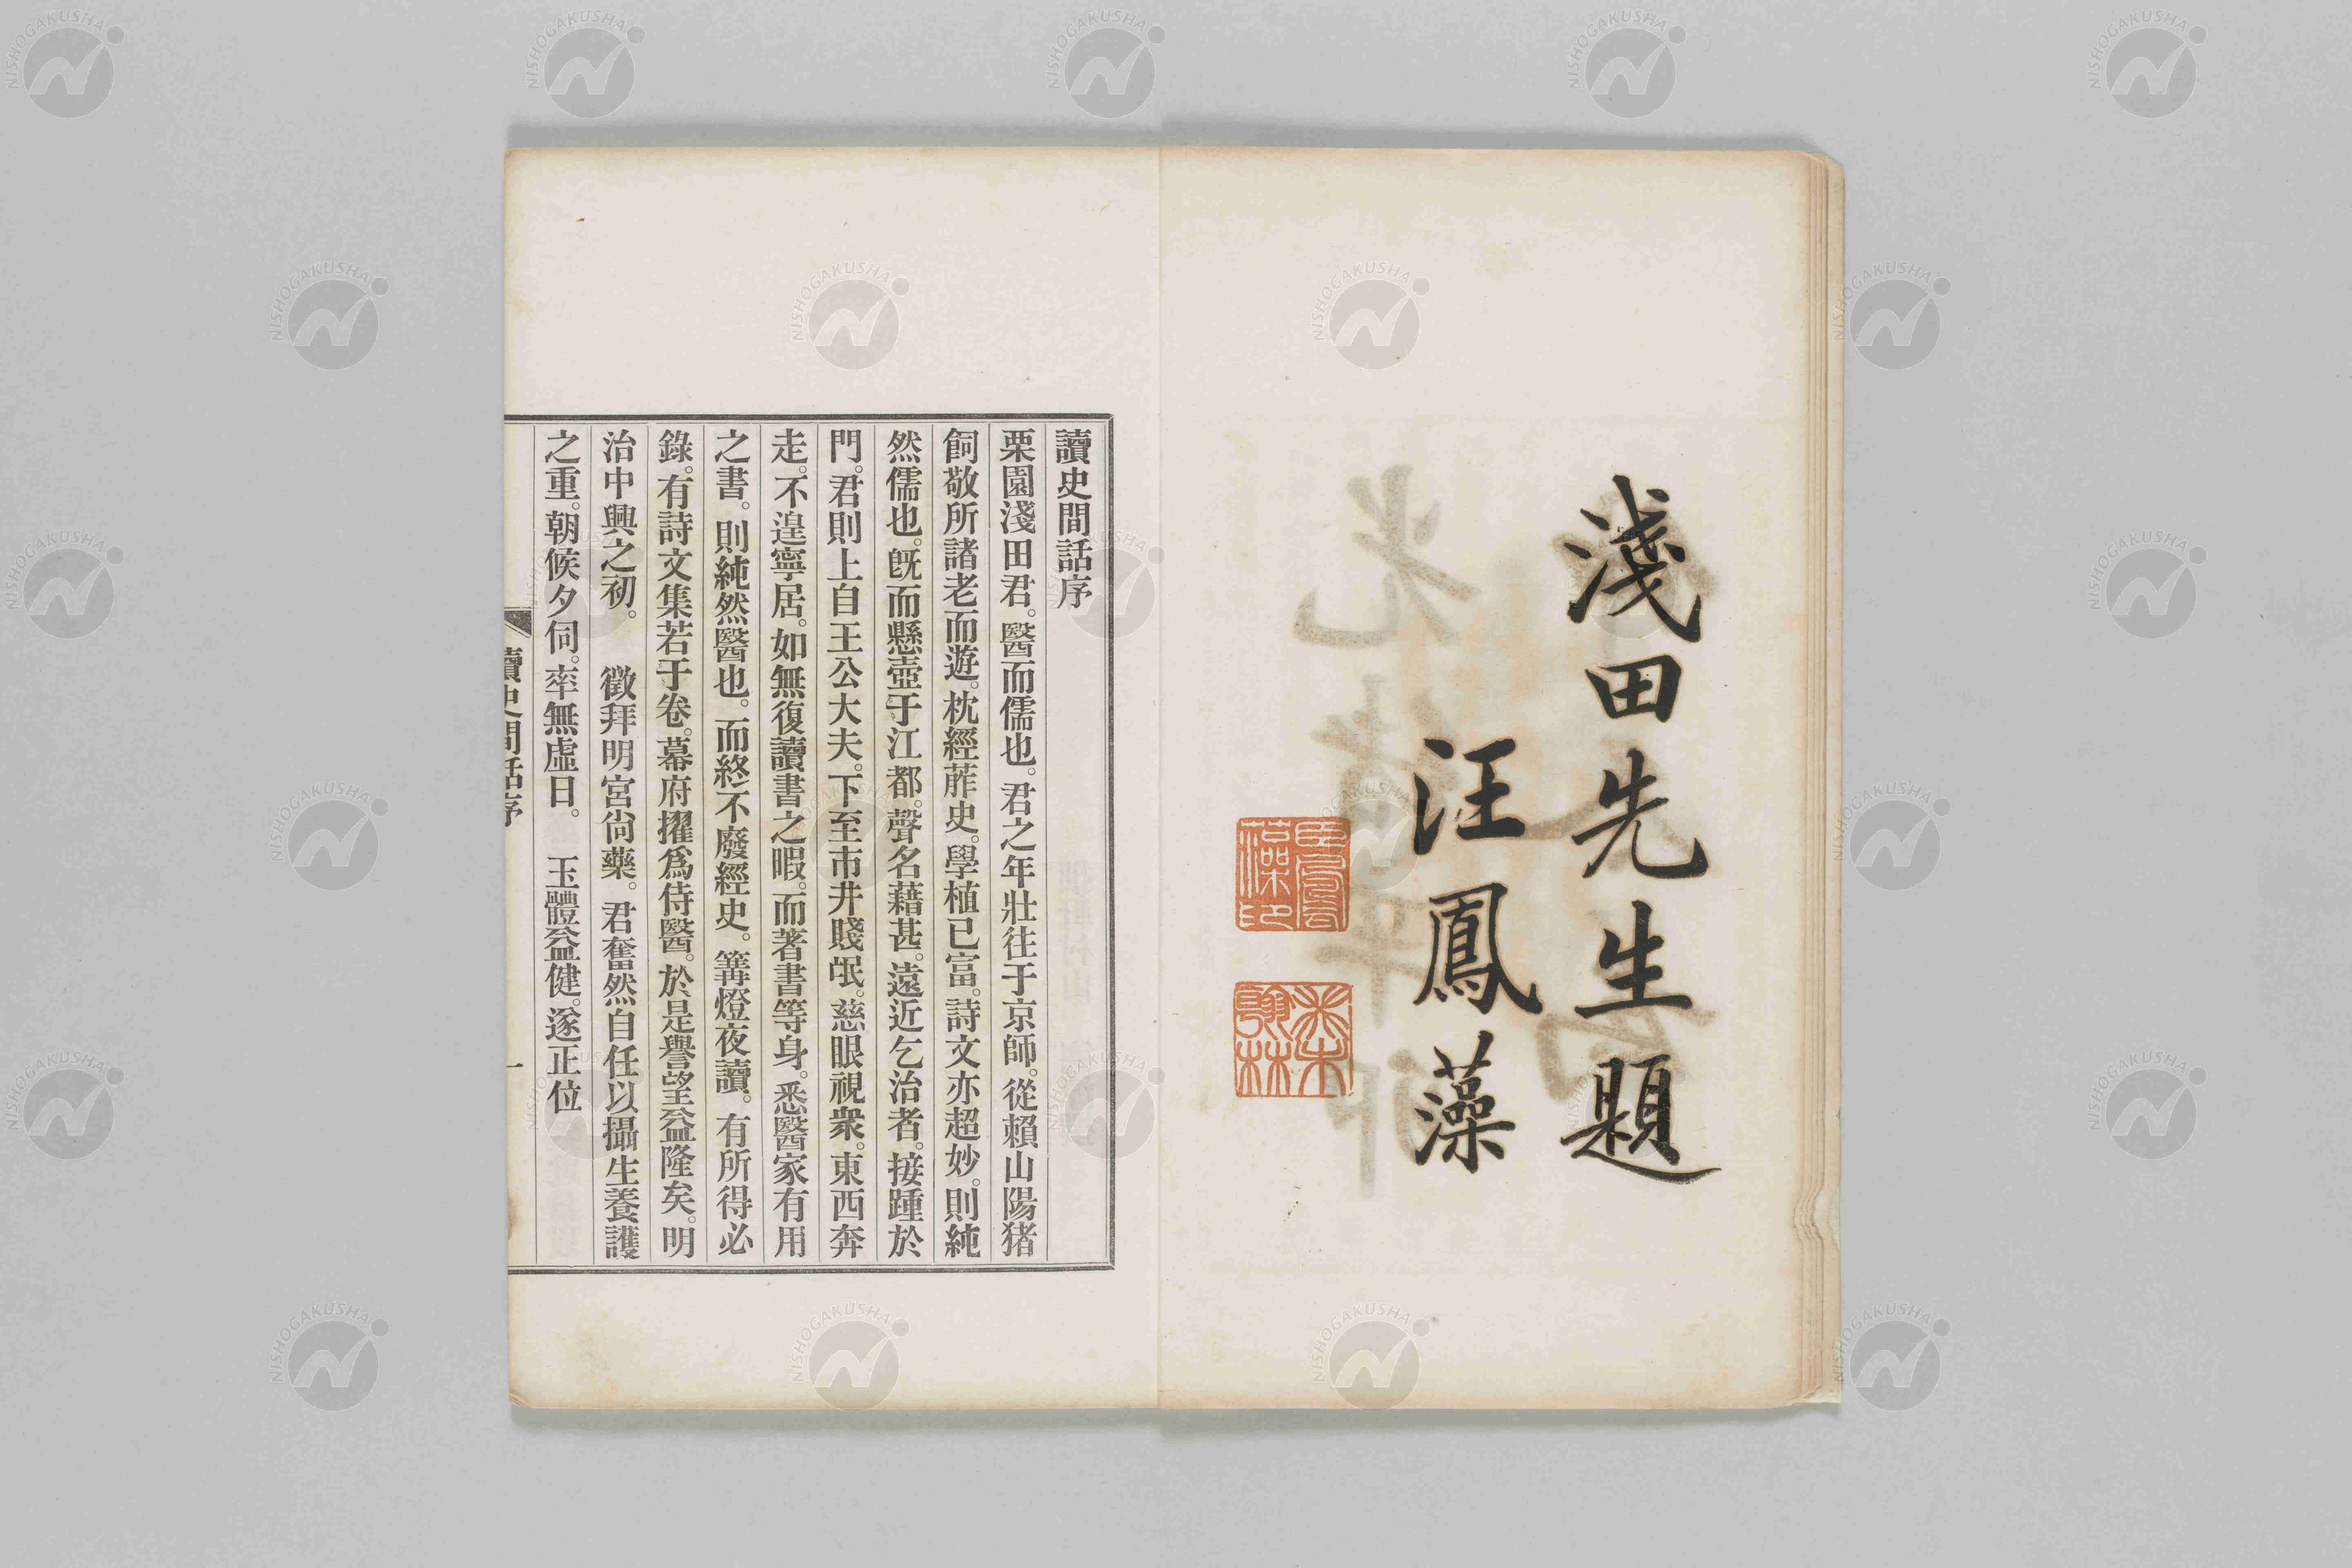 淺田先生題
汪鳳藻
讀史間話序
栗園淺田君。醫而儒也。君之年壯往于京師。從賴山陽猪
飼敬所諸老而遊。枕經藉史。學植已富。詩文亦超妙。則純
然儒也。既而懸壺于江都。聲名藉甚。遠近乞治者。接踵於
門。君則上自王公大夫。下至市井賤氓。慈眼視衆。東西奔
走。不遑寧居。如無復讀書之暇。而著書等身。悉醫家有用
之書。則純然醫也。而終不廢經史。篝燈夜讀。有所得必
錄。有詩文集若于卷。幕府擢爲侍醫。於是譽望益隆矣。明
治中興之初。 徵拜明宮尙藥。君奮然自任以攝生養護
之重。朝候夕伺。率無虛日。 玉體益健。遂正位
讀史間話序
一
NISHOGAKUSHA